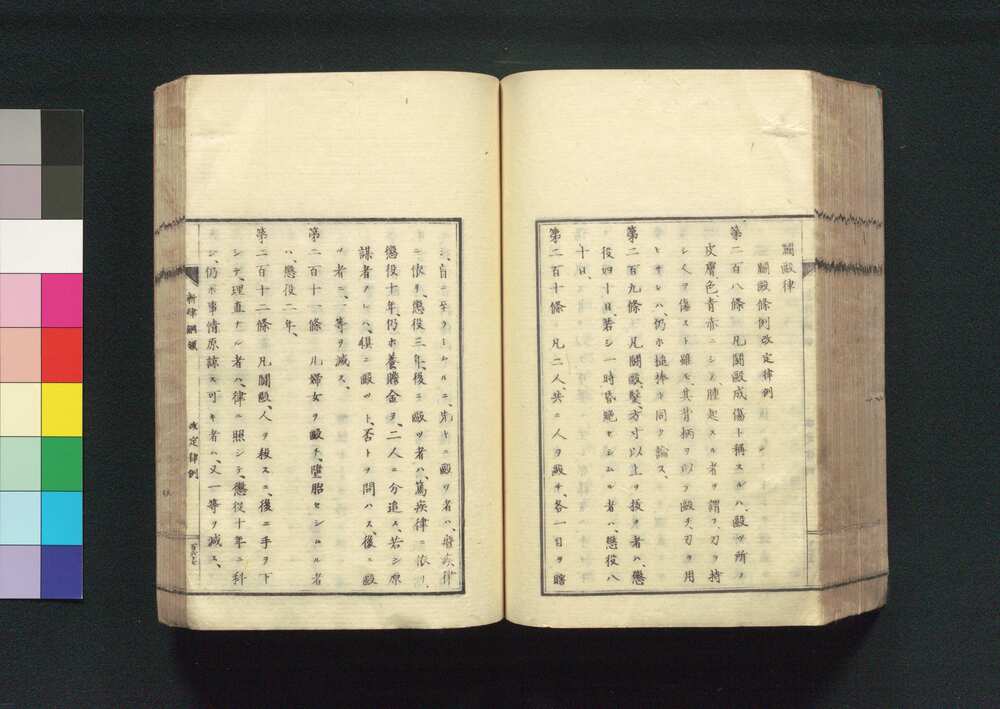 鬪毆律
鬪毆條例改定律例
第二百八條 凡鬪毆成傷ト稱スルハ、毆ツ所ノ
皮膚、色、青赤ニシテ、腫起スル者ヲ謂フ、刃ヲ持
シ人ヲ傷スト雖モ、其背柄ヲ以テ毆チ、刃ヲ用
ヒサレハ、仍ホ搥捧ト同ク論ス、
第二百九條 凡鬪毆、髮、方寸以上ヲ拔ク者ハ、懲
役四十日、若シ一時昏絶セシムル者ハ、懲役八
十日、
第二百十條 凡二人、共ニ人ヲ毆チ、各一目ヲ瞎
シ、自
ニ依リ、懲役三年、後ニ毆ツ者ハ、篤疾律ニ依リ、
懲役十年、仍ホ養贍金ヲ、二人ニ分追ス、若シ原
謀者アレハ、倶ニ毆ツト、否トヲ問ハス、後ニ毆
ル者ニ、一等ヲ減ス、
第二百十一條 凡婦女ヲ毆チ、墮胎セシムル者
ハ、懲役二年、
第二百十二條 凡鬪毆、人ヲ殺スニ、後ニ手ヲ下
シテ、理直ナル者ハ、律ニ照シテ、懲役十年ニ科
シ、仍ホ事情原諒ス可キ者ハ、又一等ヲ減ス、
新律綱領
改定律例